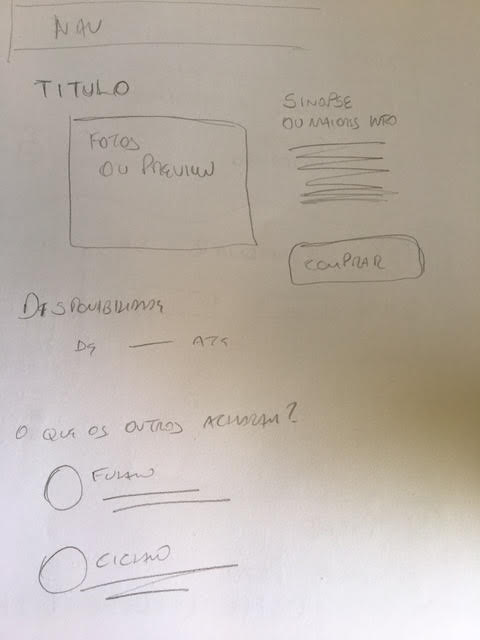 NAV
TITULO
FOTOS
OU PREVIEW
SINOPSE
OU MAIORES INFO
COMPRAR
DISPONIBILIDADE
DE — ATE
O QUE OS OUTROS ACHARAM?
FULANO
CICLANO